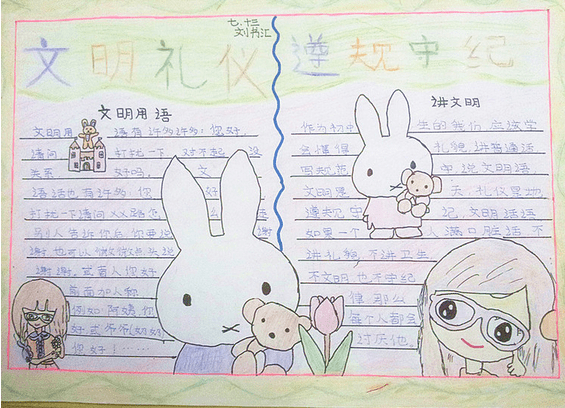 七、十三
刘书汇
文明礼仪 遵规守纪
文明用语
文明用语有许多许多：你好，
请问 打扰一下 对不起 没
关系 好吗 文
语话也有许多，你 好
打扰一下请问XX路怎
别人告诉你后你要说 谢
谢也可以微微点头说
谢谢。 人你好
前面加人称
例如阿姨你
好 爷爷(奶奶)
你好！……
讲文明
作为初中生的我们应该学
会懂得 礼貌讲普通话
同规范 中说文明语
文明是 天，礼仪是地
遵规守 纪，文明话语
如果一个 人满口脏话不
讲礼貌不讲卫生
不文明也不守纪
律那么
每个人都会
讨厌他。